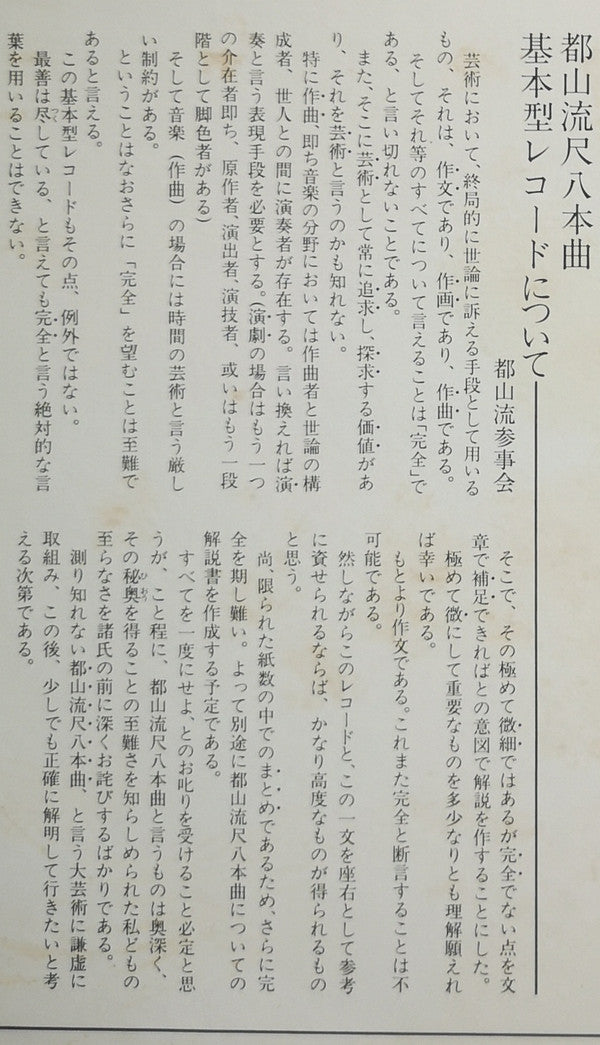 都山流尺八本曲
基本型レコードについて
都山流参事会
芸術において、終局的に世論に訴える手段として用いる
もの、それは、作文であり、作画であり、作曲である。
そしてそれ等のすべてについて言えることは「完全」で
ある、と言い切れないことである。
また、そこに芸術として常に追求し、探求する価値があ
り、それを芸術と言うのかも知れない。
特に作曲、即ち音楽の分野においては作曲者と世論の構
成者、世人との間に演奏者が存在する。言い換えれば演
奏と言う表現手段を必要とする。（演劇の場合はもう一つ
の介在者即ち、原作者、演出者、演技者、或いはもう一段
階として脚色者がある）
そして音楽（作曲）の場合には時間の芸術と言う厳し
い制約がある。
ということはなおさらに「完全」を望むことは至難で
あると言える。
この基本型レコードもその点、例外ではない。
最善は尽している、と言えても完全と言う絶対的な言
葉を用いることはできない。
そこで、その極めて微細ではあるが完全でない点を文
章で補足できればとの意図で解説を作することにした。
極めて微にして重要なものを多少なりとも理解願えれ
ば幸いである。
もとより作文である。これまた完全と断言することは不
可能である。
然しながらこのレコードと、この一文を座右として参考
に資せられるならば、かなり高度なものが得られるもの
と思う。
尚、限られた紙数の中でのまとめであるため、さらに完
全を期し難い。よって別途に都山流尺八本曲についての
解説書を作成する予定である。
すべてを一度にせよ、とのお叱りを受けること必定と思
うが、こと程に、都山流尺八本曲と言うものは奥深く、
その秘奥を得ることの至難さを知らしめられた私どもの
至らなさを諸氏の前に深くお詫びするばかりである。
測り知れない都山流尺八本曲、と言う大芸術に謙虚に
取組み、この後、少しでも正確に解明して行きたいと考
える次第である。